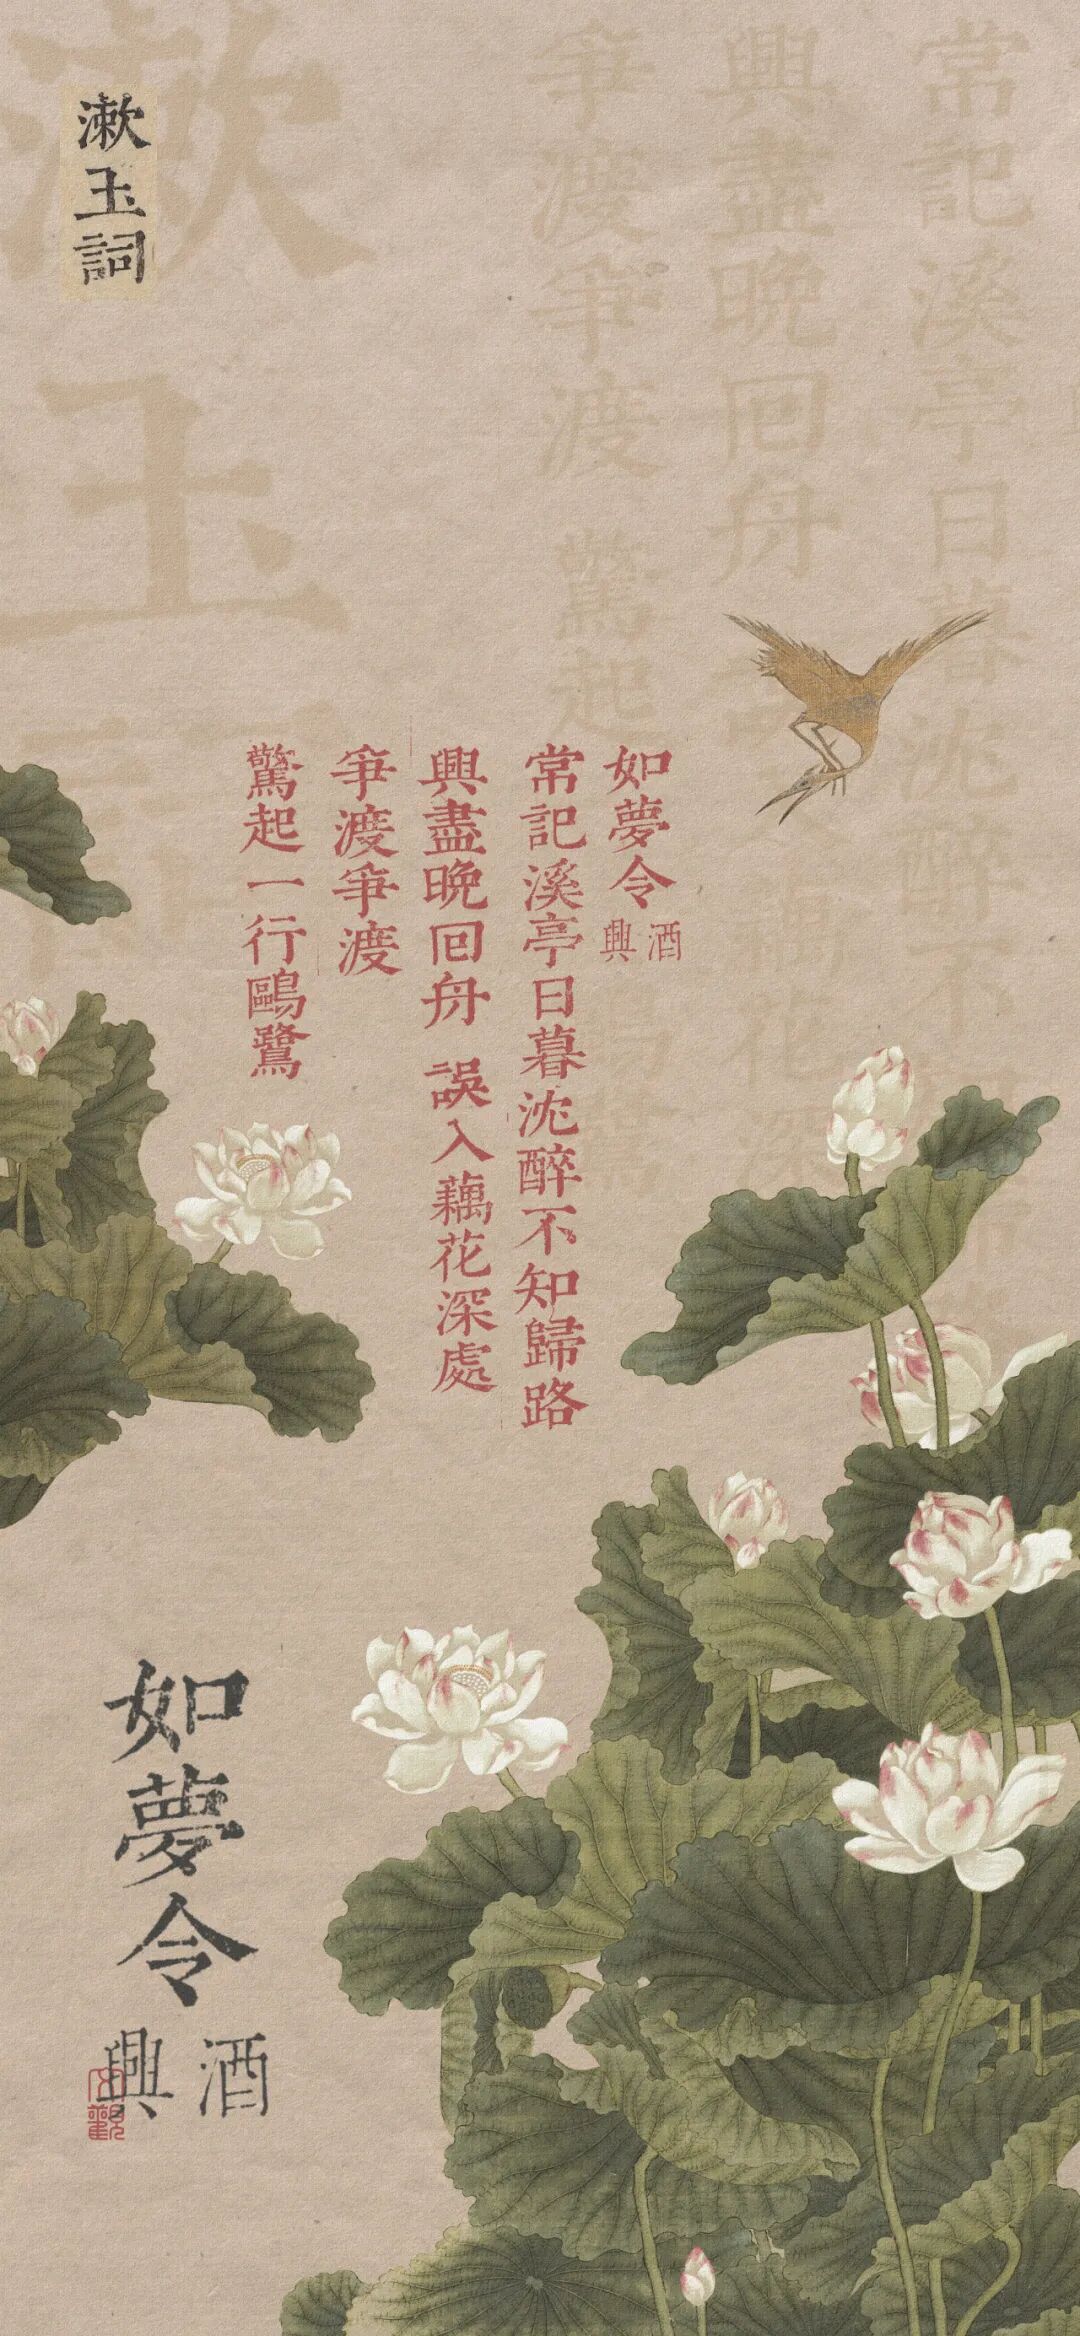 漱玉詞
漱玉
常記溪亭日暮沈醉不
興盡晚回舟
爭渡爭渡 驚起
如夢令 酒興
常記溪亭日暮沈醉不知歸路
興盡晚回舟 誤入藕花深處
爭渡爭渡
驚起一行鷗鷺
如夢令
酒興